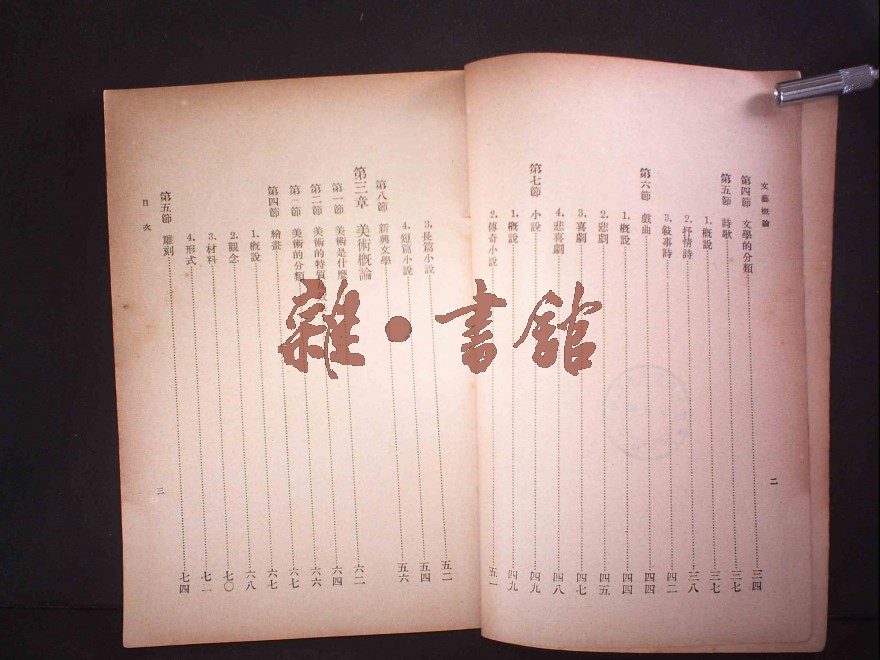 文藝概論
第四節 文學的分類 三四
第五節 詩歌 三七
1. 概說 三七
2. 抒情詩 三八
3. 敍事詩 四二
第六節 戲曲 四四
1. 概說 四四
2. 悲劇 四五
3. 喜劇 四七
4. 悲喜劇 四八
第七節 小說 四九
1. 概說 四九
2. 傳奇小說 五一
二
3. 長篇小說 五二
4. 短篇小說 五四
第八節 新興文學 五六
第三章 美術概論 六二
第一節 美術是什麼 六四
第二節 美術的特質 六六
第三節 美術的分類 六七
第四節 繪畫 六七
1. 概說 六八
2. 觀念 七〇
3. 材料 七一
4. 形式
第五節 雕刻 七四
目次
三
雜·書館